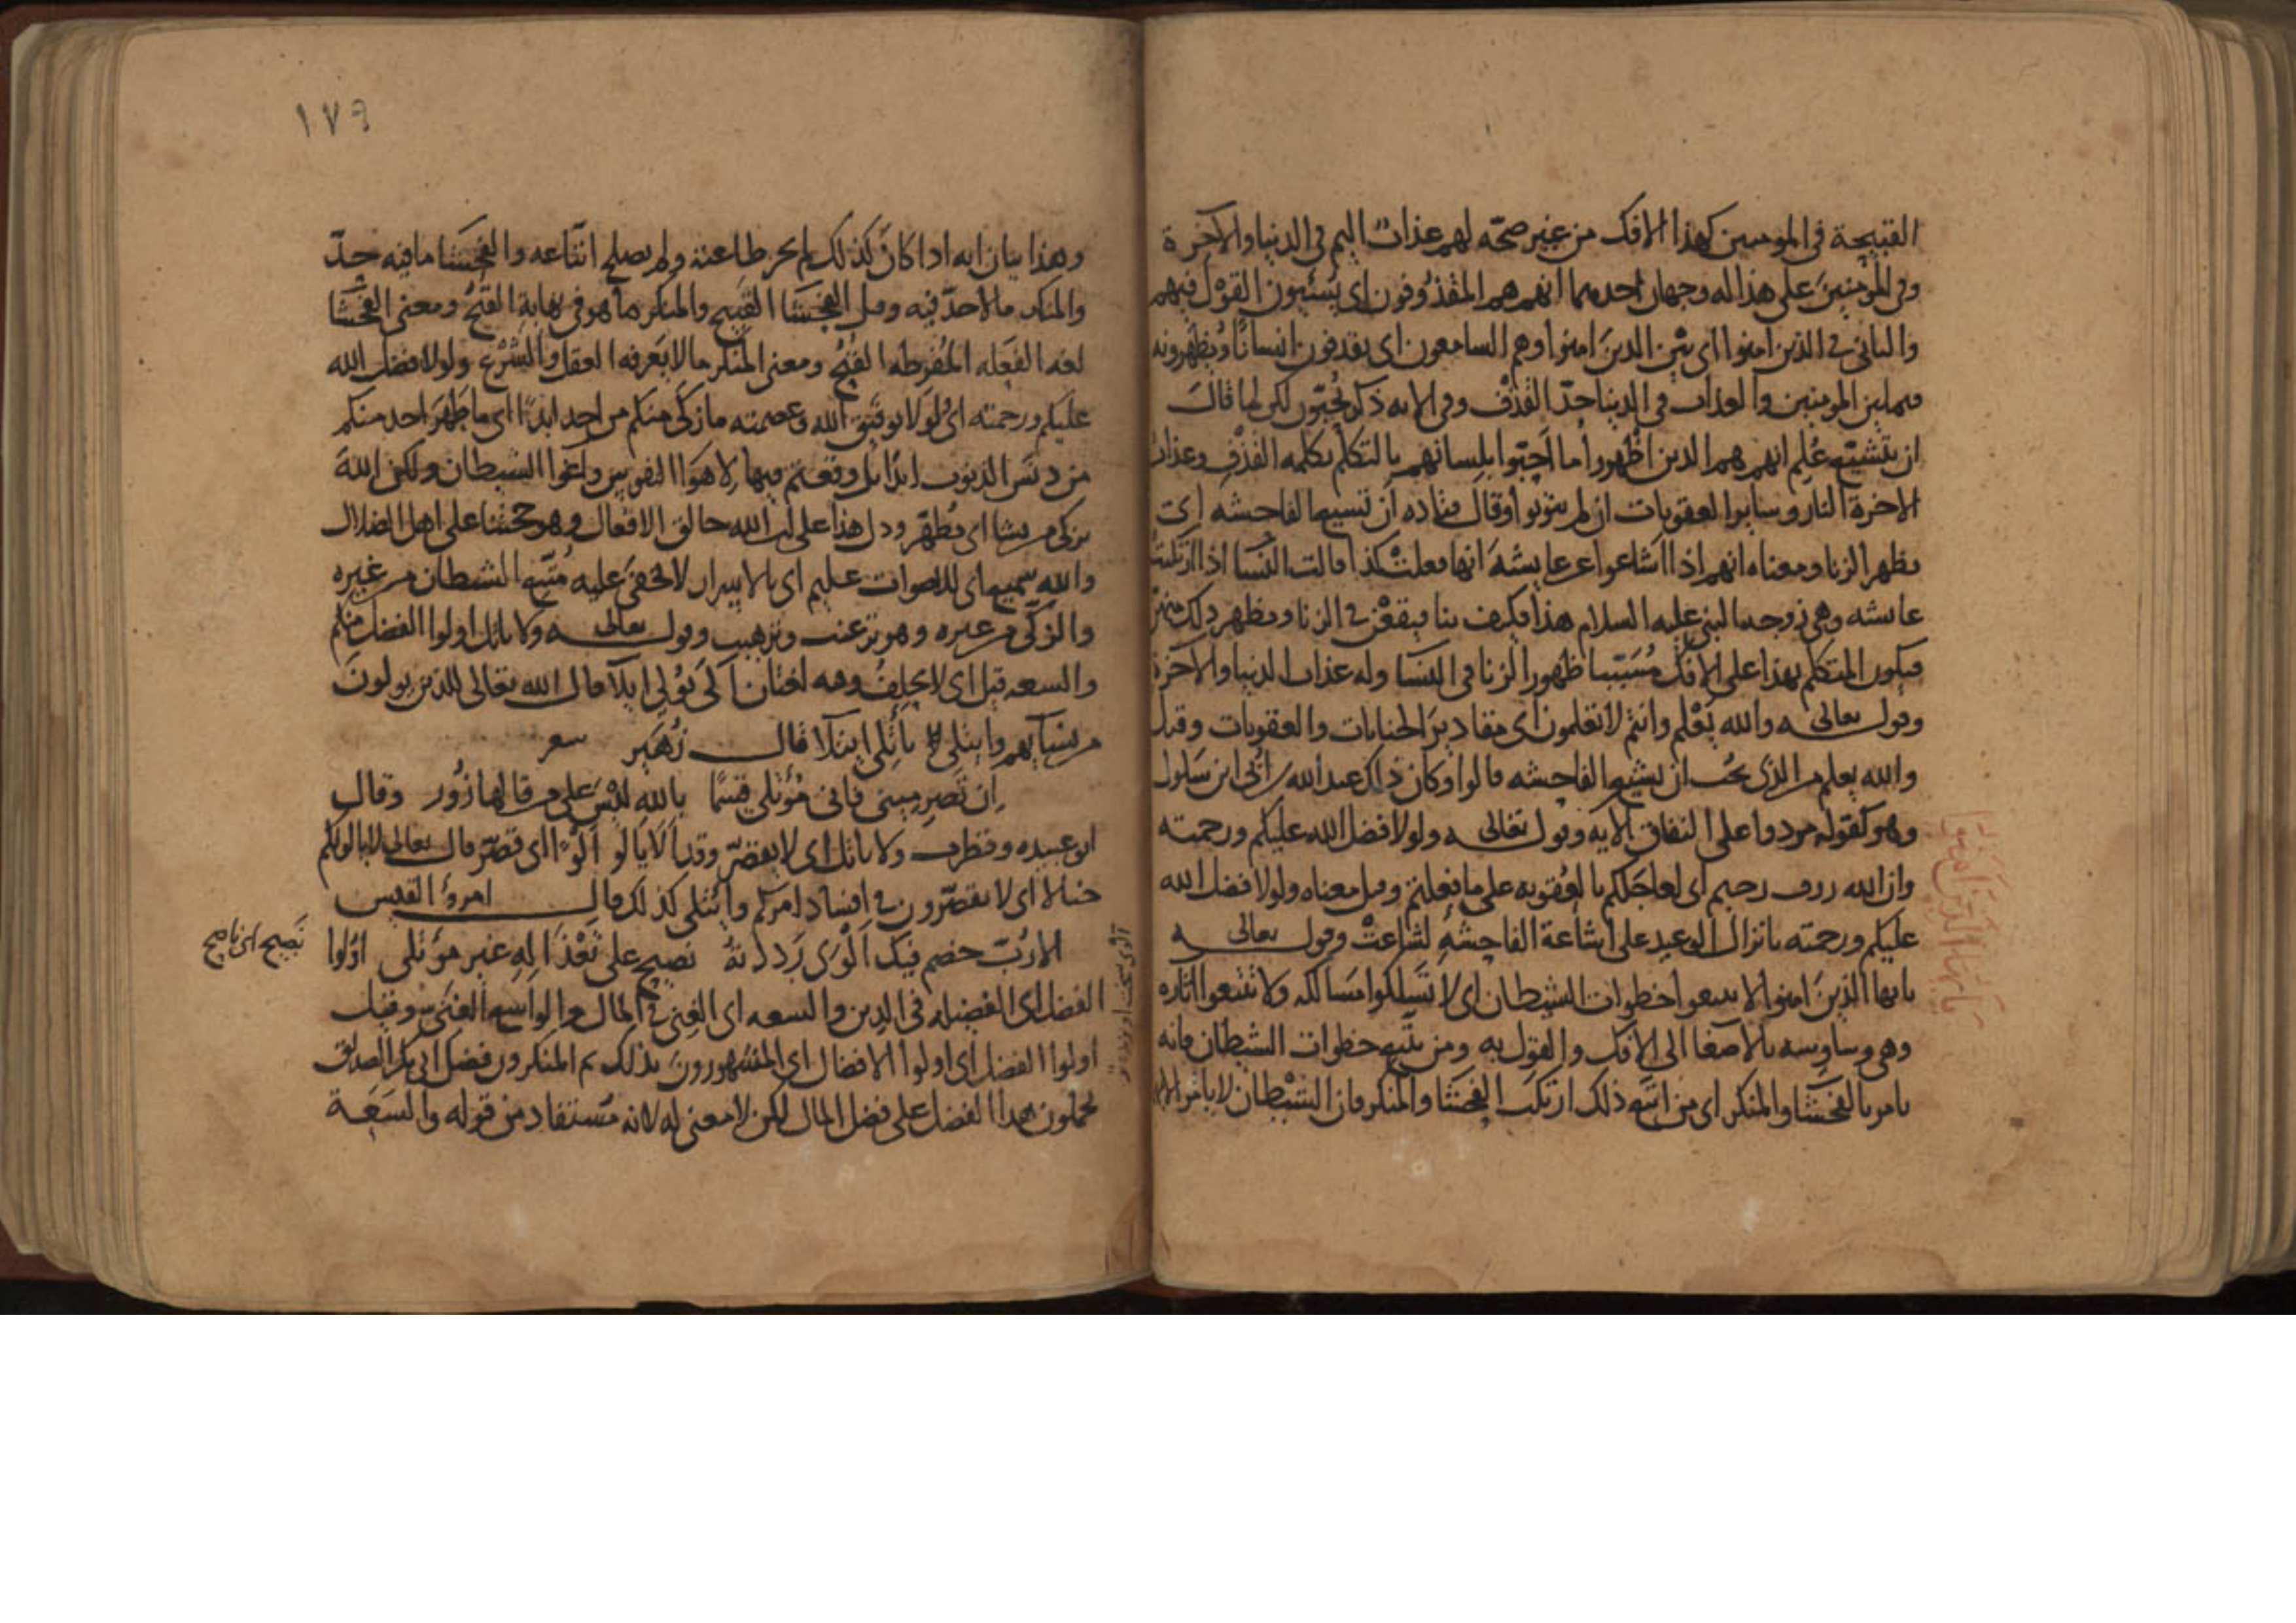 القبيحة في المومنين كهذا الافك من غير صحّه لهم عذاب اليم في الدنيا والآخرة
وفي المؤمنين على هذا له وجهان احدهما انهم هم المقذوفون اى يُسيئون القول فيهم
والثاني في الذين امنوا اى بين الذين امنوا وهم السامعون اى يقذفون انسانًا ويُظهرونه
فيما بين المومنين والعذاب في الدنيا حدّ القذف وفي الايه ذكر يُحبّون لكن لما قال
ان تشيع عُلم انهم هم الذين اظهروا ما احبّوا بلسانهم بالتكلم بكلمه القذف وعذاب
الاخرة النار وساير العقوبات ان لم يتوبوا وقال قتاده أن تشيع الفاحشه اى
يظهر الزنا ومعناه انهم اذا اشاعوا عن عايشه انها فعلت كذا قالت النسا اذا
عايشه وهي زوجه النبي عليه السلام هذا فكيف بنا فيقعن في الزنا ويظهر ذلك منهن
فيكون المتكلم بهذا على الافك مُسَبّبا ظهور الزنا في النسا وله عذاب الدنيا والآخرة
وقوله تعالى والله يعلم وانتم لا تعلمون اى مقادير الجنايات والعقوبات وقيل
والله يعلم من الذي يحب ان يشيع الفاحشه قالوا وكان ذلك عبد الله بن أبي ابن سلول
وهو كقوله مردوا على النفاق الايه وقوله تعالى ولولا فضل الله عليكم ورحمته
وان الله روف رحيم اى لعاجلكم بالعقوبه على ما فعلتم وقيل معناه ولولا فضل الله
عليكم ورحمته بانزال الوعيد على اشاعة الفاحشه لشاعت وقوله تعالى
يا ايها الذين امنوا
يايها الذين امنوا لا تتبعوا خطوات الشيطان اى لا تسلكوا مسالكه ولا تتبعوا اثاره
وهي وساوسه بالاصغا الى الافك والقول به ومن يتبع خطوات الشيطان فانه
يامر بالفحشا والمنكر اى من اتبع ذلك ارتكب الفحشا والمنكر فان الشيطان لا يامر الا
١٧٩
وهذا بيان انه اذا كان كذلك لم يجز طاعته ولم يصلح اتّباعه والفحشا ما فيه حدّ
والمنكر ما لا حدّ فيه وقيل الفحشا القبيح والمنكر ما هو في نهاية القبح ومعنى الفحشا
لغه الفعله المُفرطه القُبح ومعنى المنكر ما لا يعرفه العقل والشرع ولولا فضل الله
عليكم ورحمته اى ولولا توفيق الله وعصمته ما زكى منكم من احد ابدًا اى ما طهر احد منكم
من دنس الذنوب ابدًا بل وقعتم فيها لاهوا النفوس واغوا الشيطان ولكن الله
يزكى من يشا اى يُطهّر ودل هذا على ان الله خالق الافعال وهو حجتنا على اهل الضلال
والله سميع اى للاصوات عليم اى بالاسرار لا يخفى عليه مُتّبع الشيطان من غيره
والزكي من غيره وهو ترغيب وترهيب وقوله تعالى ولا ياتل اولوا الفضل منكم
والسعه قيل اى لا يحلف وفيه لغتان آلى يُولي ايلآ قال الله تعالى للذين يولون
من نسآيهم وايتلى يأتلي ايتلآ قال زهير شعر
ان تصرميني فاني مُؤتلي قسمًا بالله ليس على من قالها زُور وقال
ابو عبيده وقطرب ولا ياتل اى لا يقصّر وقد ألا يألو ألوًا اى قصّر قال تعالى لا يالونكم
خبالا اى لا يقصّرون في افساد امركم وائتلى كذلك قال امرؤ القيس
الا رُبّ خصم فيك ألوى رددته نصيح على تعذاله غير مؤتلي اولوا
نصيح اى ناصح
الفضل اى الفضيله في الدين والسعه اى الغنى في المال والواسع الغني وقيل
اولوا الفضل اى اولوا الافضال اى المشهورون بذلك ثم المنكرون فضل ابي بكر الصديق
يحملون هذا الفضل على فضل المال لكن لا معنى له لانه مستفاد من قوله والسعة